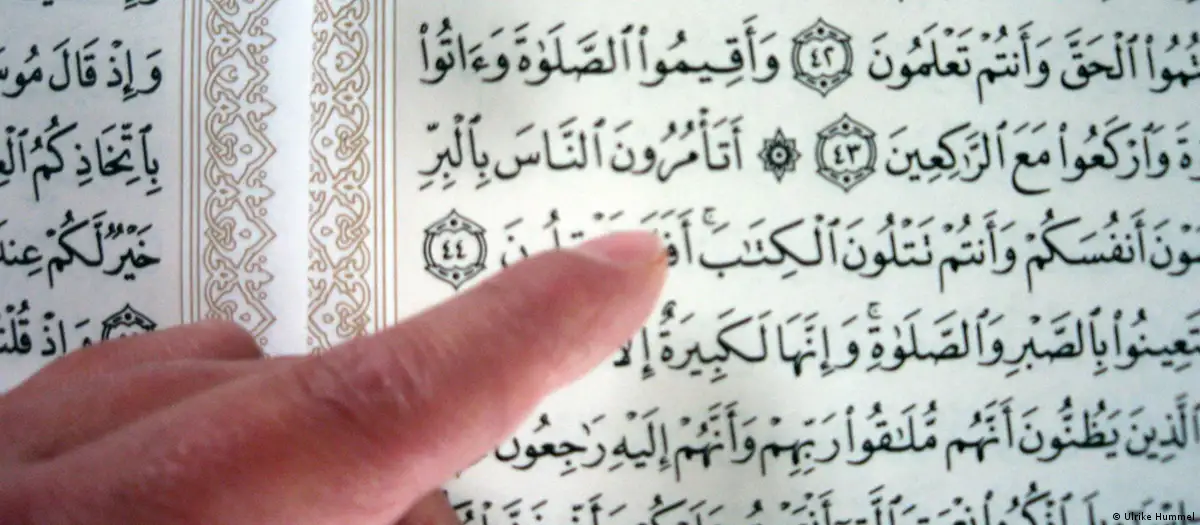 تُمُوا۟ ٱلْحَقَّ وَأَنتُمْ تَعْلَمُونَ ٤٢ وَأَقِيمُوا۟ ٱلصَّلَوٰةَ وَءَاتُوا۟
ةَ وَٱرْكَعُوا۟ مَعَ ٱلرَّٰكِعِينَ ٤٣ ۞ أَتَأْمُرُونَ ٱلنَّاسَ بِٱلْبِرِّ
سَوْنَ أَنفُسَكُمْ وَأَنتُمْ تَتْلُونَ ٱلْكِتَٰبَ ۚ ٤٤
تَعِينُوا۟ بِٱلصَّبْرِ وَٱلصَّلَوٰةِ ۚ وَإِنَّهَا لَكَبِيرَةٌ إِلَّا
ٱلَّذِينَ يَظُنُّونَ أَنَّهُم مُّلَٰقُوا۟ رَبِّهِمْ وَأَنَّهُمْ إِلَيْهِ رَٰجِعُونَ
وَإِذْ قَالَ مُوسَ
بِٱتِّخَاذِكُمُ ٱلْعِ
خَيْرٌ لَّكُمْ عِندَ
وَإِذْ قُلْتُ
© Ulrike Hummel